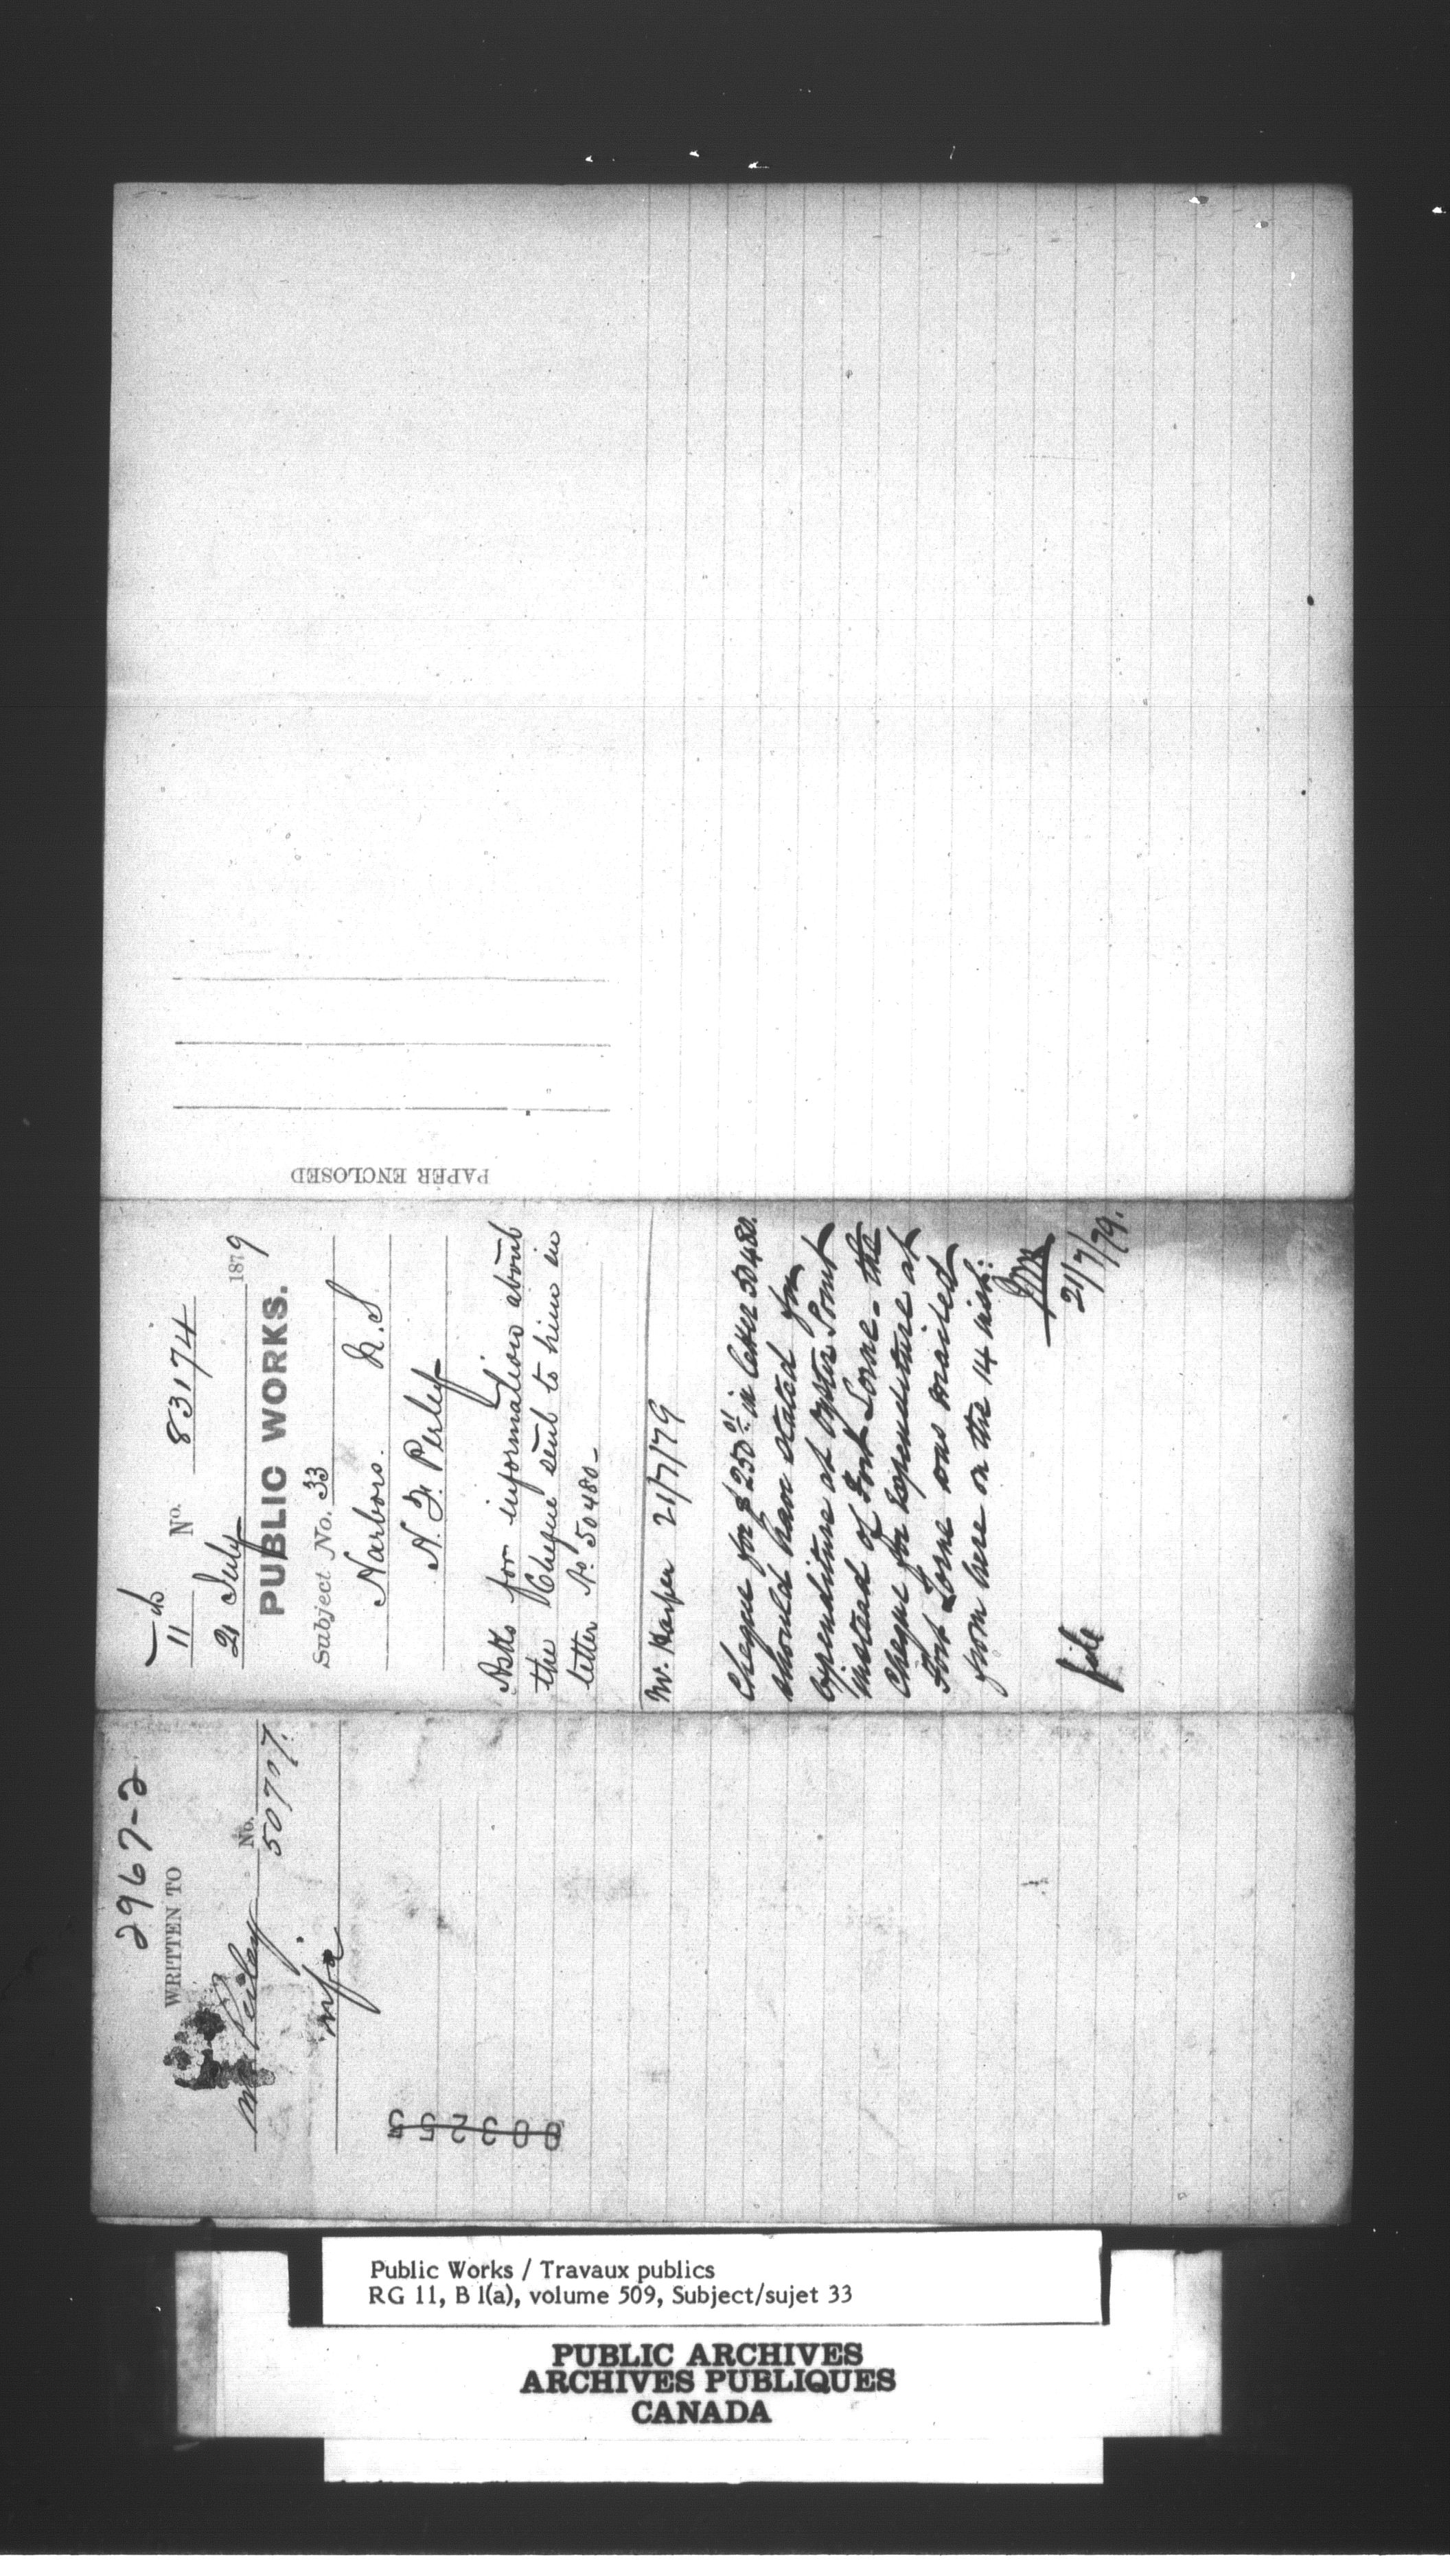 11 No. 83174
21 July 1879
PUBLIC WORKS.
Subject No. 33
Harbors. N.S
H. F. Perley
Asks for information about
the Cheque sent to him in
letter No. 50480-
Mr. Harper 21/7/79
Cheque for $250 in letter 50480.
should have stated for
expenditure at Oyster Point
instead of Port Lorne - the
Cheque for expenditure at
Port Lorne was mailed
from here on the 14 inst:
21/7/79.
file
PAPER ENCLOSED
2967-2
WRITTEN TO
Mr Perley No. 50707.
003253
Public Works / Travaux publics
RG 11, B 1(a), volume 509, Subject/sujet 33
PUBLIC ARCHIVES
ARCHIVES PUBLIQUES
CANADA